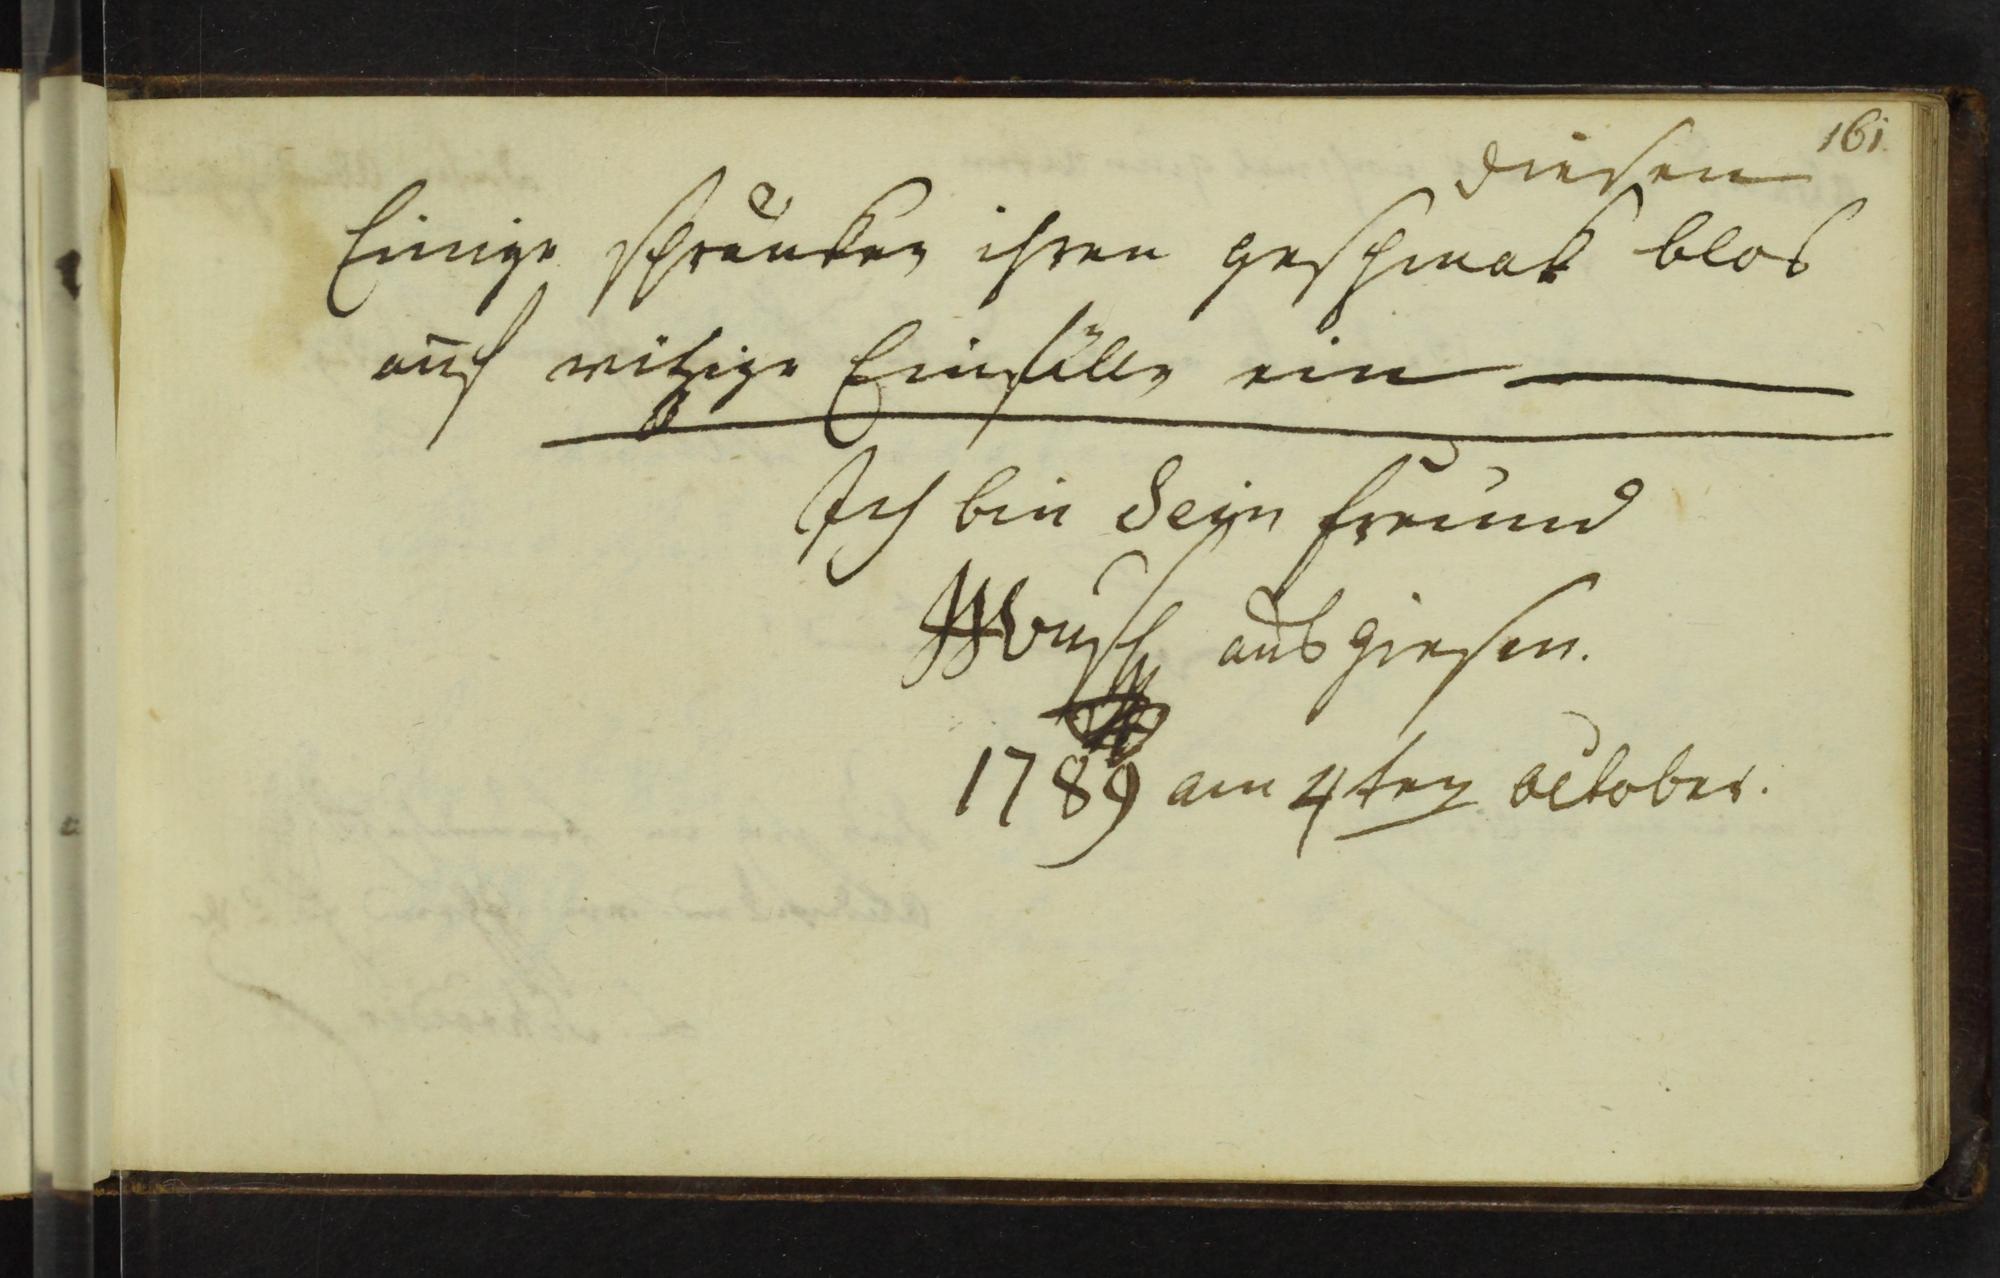 161.
diesen
Einige schränken ihren geschmak blos
auf witzige Einfälle ein
Ich bin dein freund
Busch aus giesen.
1789 am 4ten october.